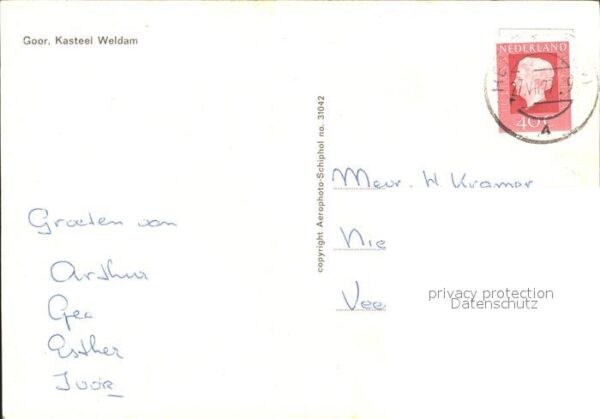 Goor. Kasteel Weldam
NEDERLAND
40c
copyright Aerophoto-Schiphol no. 31042
Groeten van
Arthur
Gea
Esther
Ivor
Mevr. W Kramer
privacy protection
Datenschutz